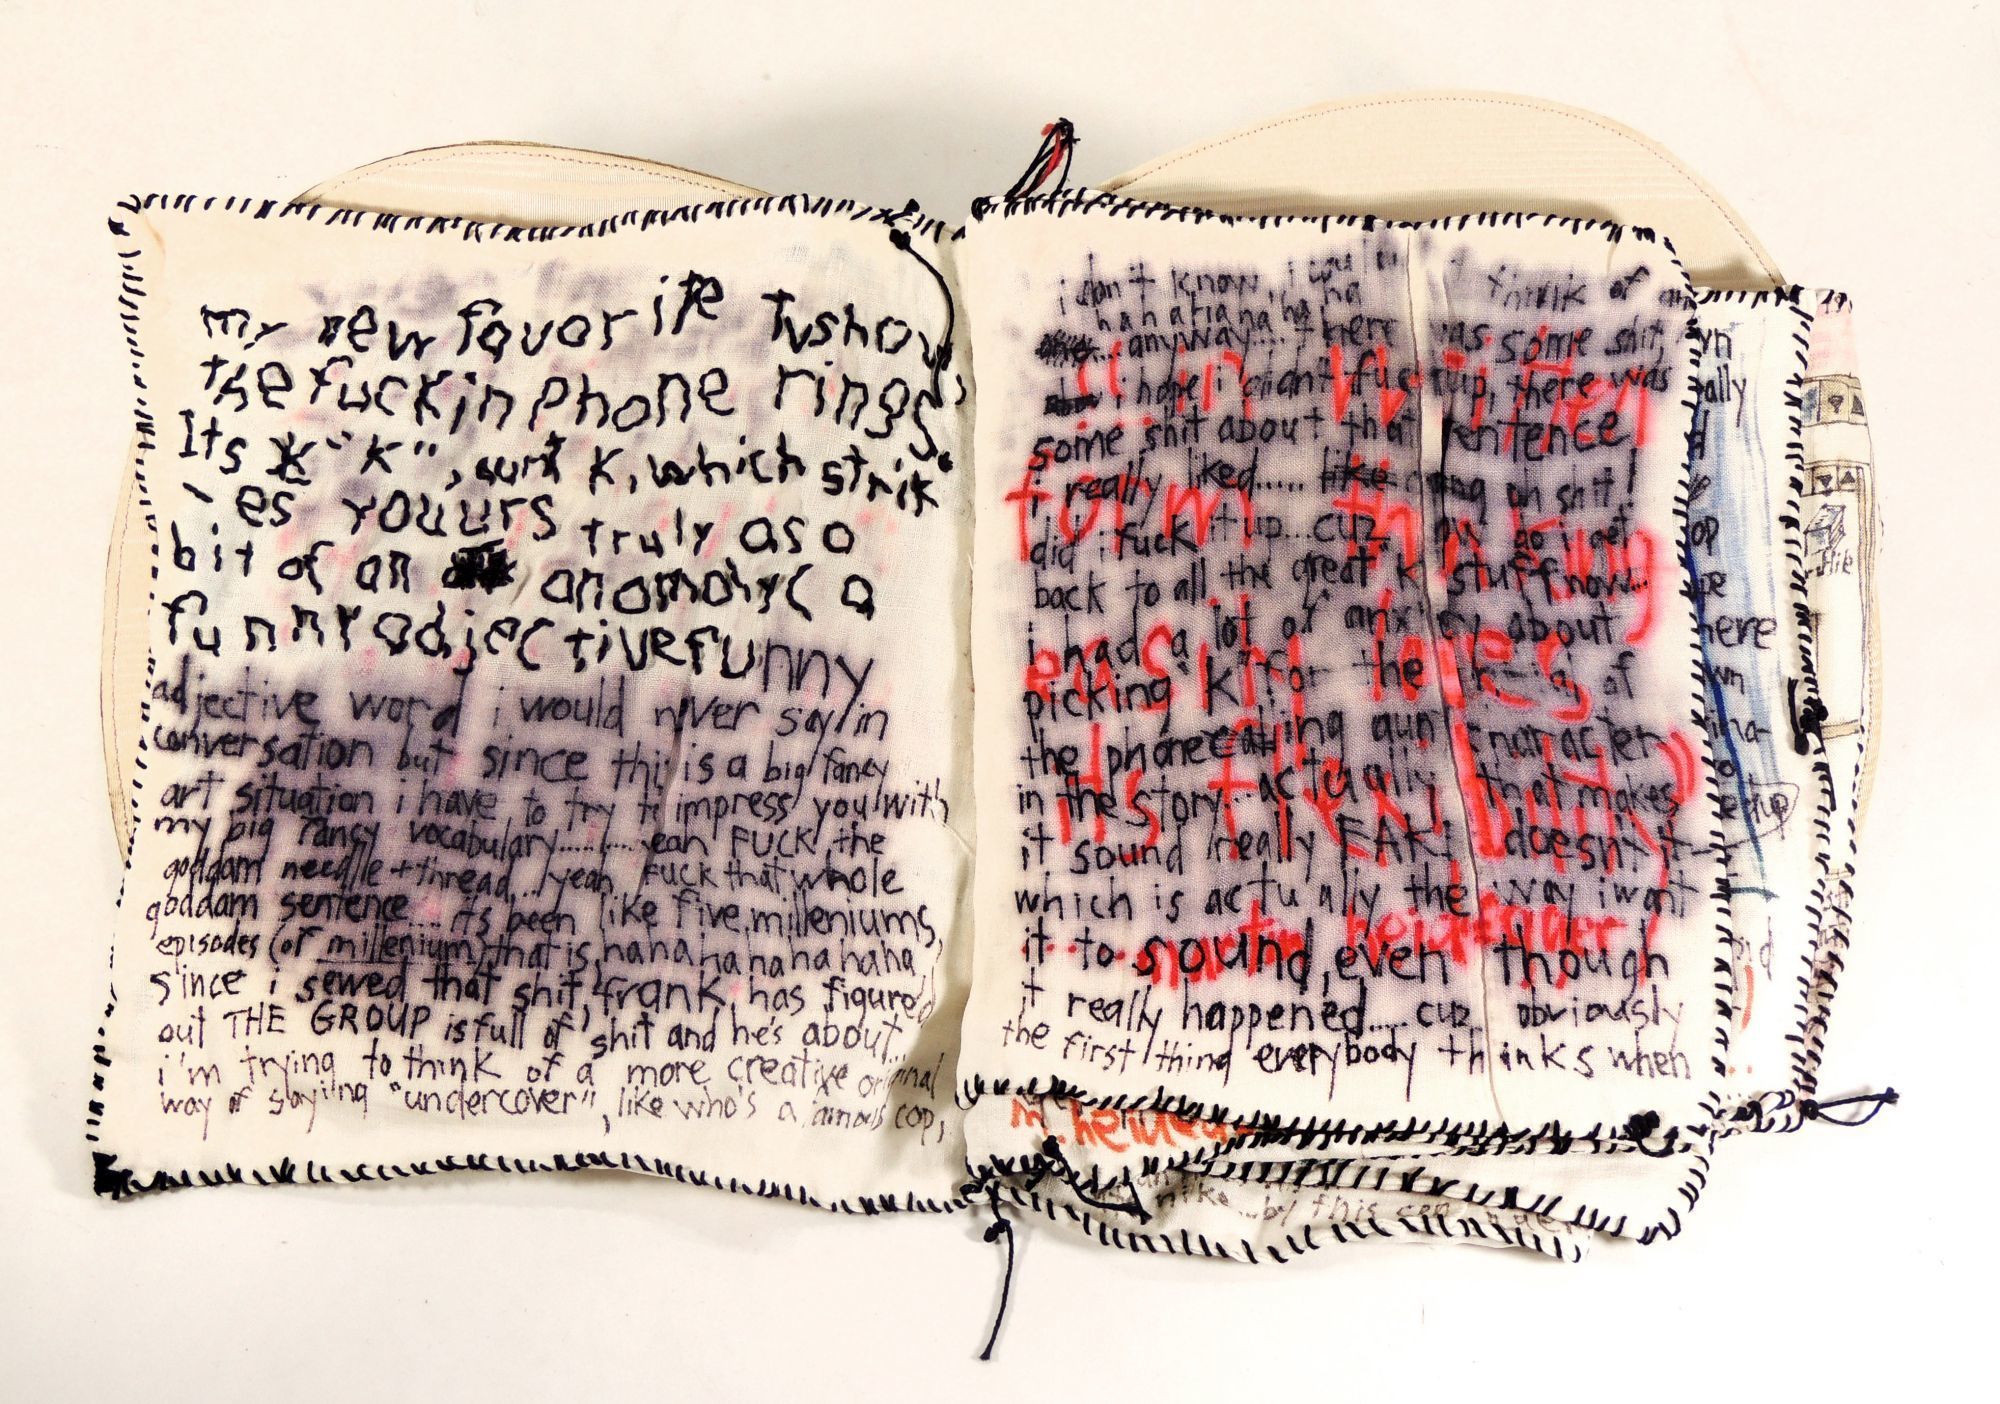 my new favorite tvshow
the fuckin phone rings,
Its K "K", aunt K, which strik
-es youurs truly as a
bit of an anomoly ( a
funny adjective funny
adjective word i would never say in
conversation but since this is a big fancy
art situation i have to try to impress you with
my big fancy vocabulary.......... yeah FUCK the
goddam needle + thread... yeah, FUCK that whole
goddam sentence.... its been like five milleniums,
episodes (of millenium) that is, hahahahahahahaha,
since i sewed that shit, frank, has figured
out THE GROUP is full of shit and he's about...
i'm trying to think of a more creative original
way of saying "undercover", like who's a famous cop,
i don't know, i think of
hahahahahaha
... anyway.... there was some shit,
i hope i didn't fuck it up, there was
some shit about that sentence
i really liked...... like oh shit!
did i fuck it up... cuz how do i get
back to all the great "K" stuff now...
i had a lot of anxiety about
picking "K" for the of
the phone calling aunt character
in the story... actually that makes
it sound really FAKE doesn't it
which is actually the way i want
it to sound, even though
it really happened.... cuz obviously
the first thing everybody thinks when
form thinking
its the
martin heidegger
wn
ally
op
here
wn
ina-
up
file
nike by this